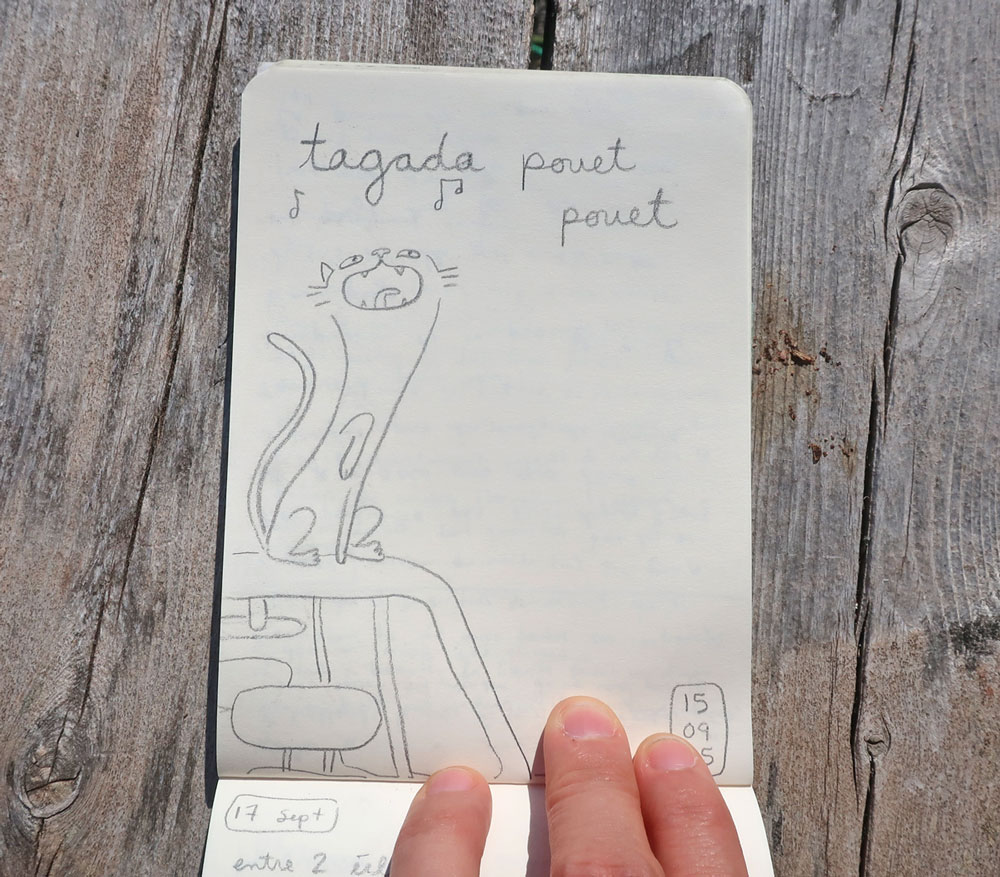 tagada pouet
pouet
15
09
17 sept
entre 2